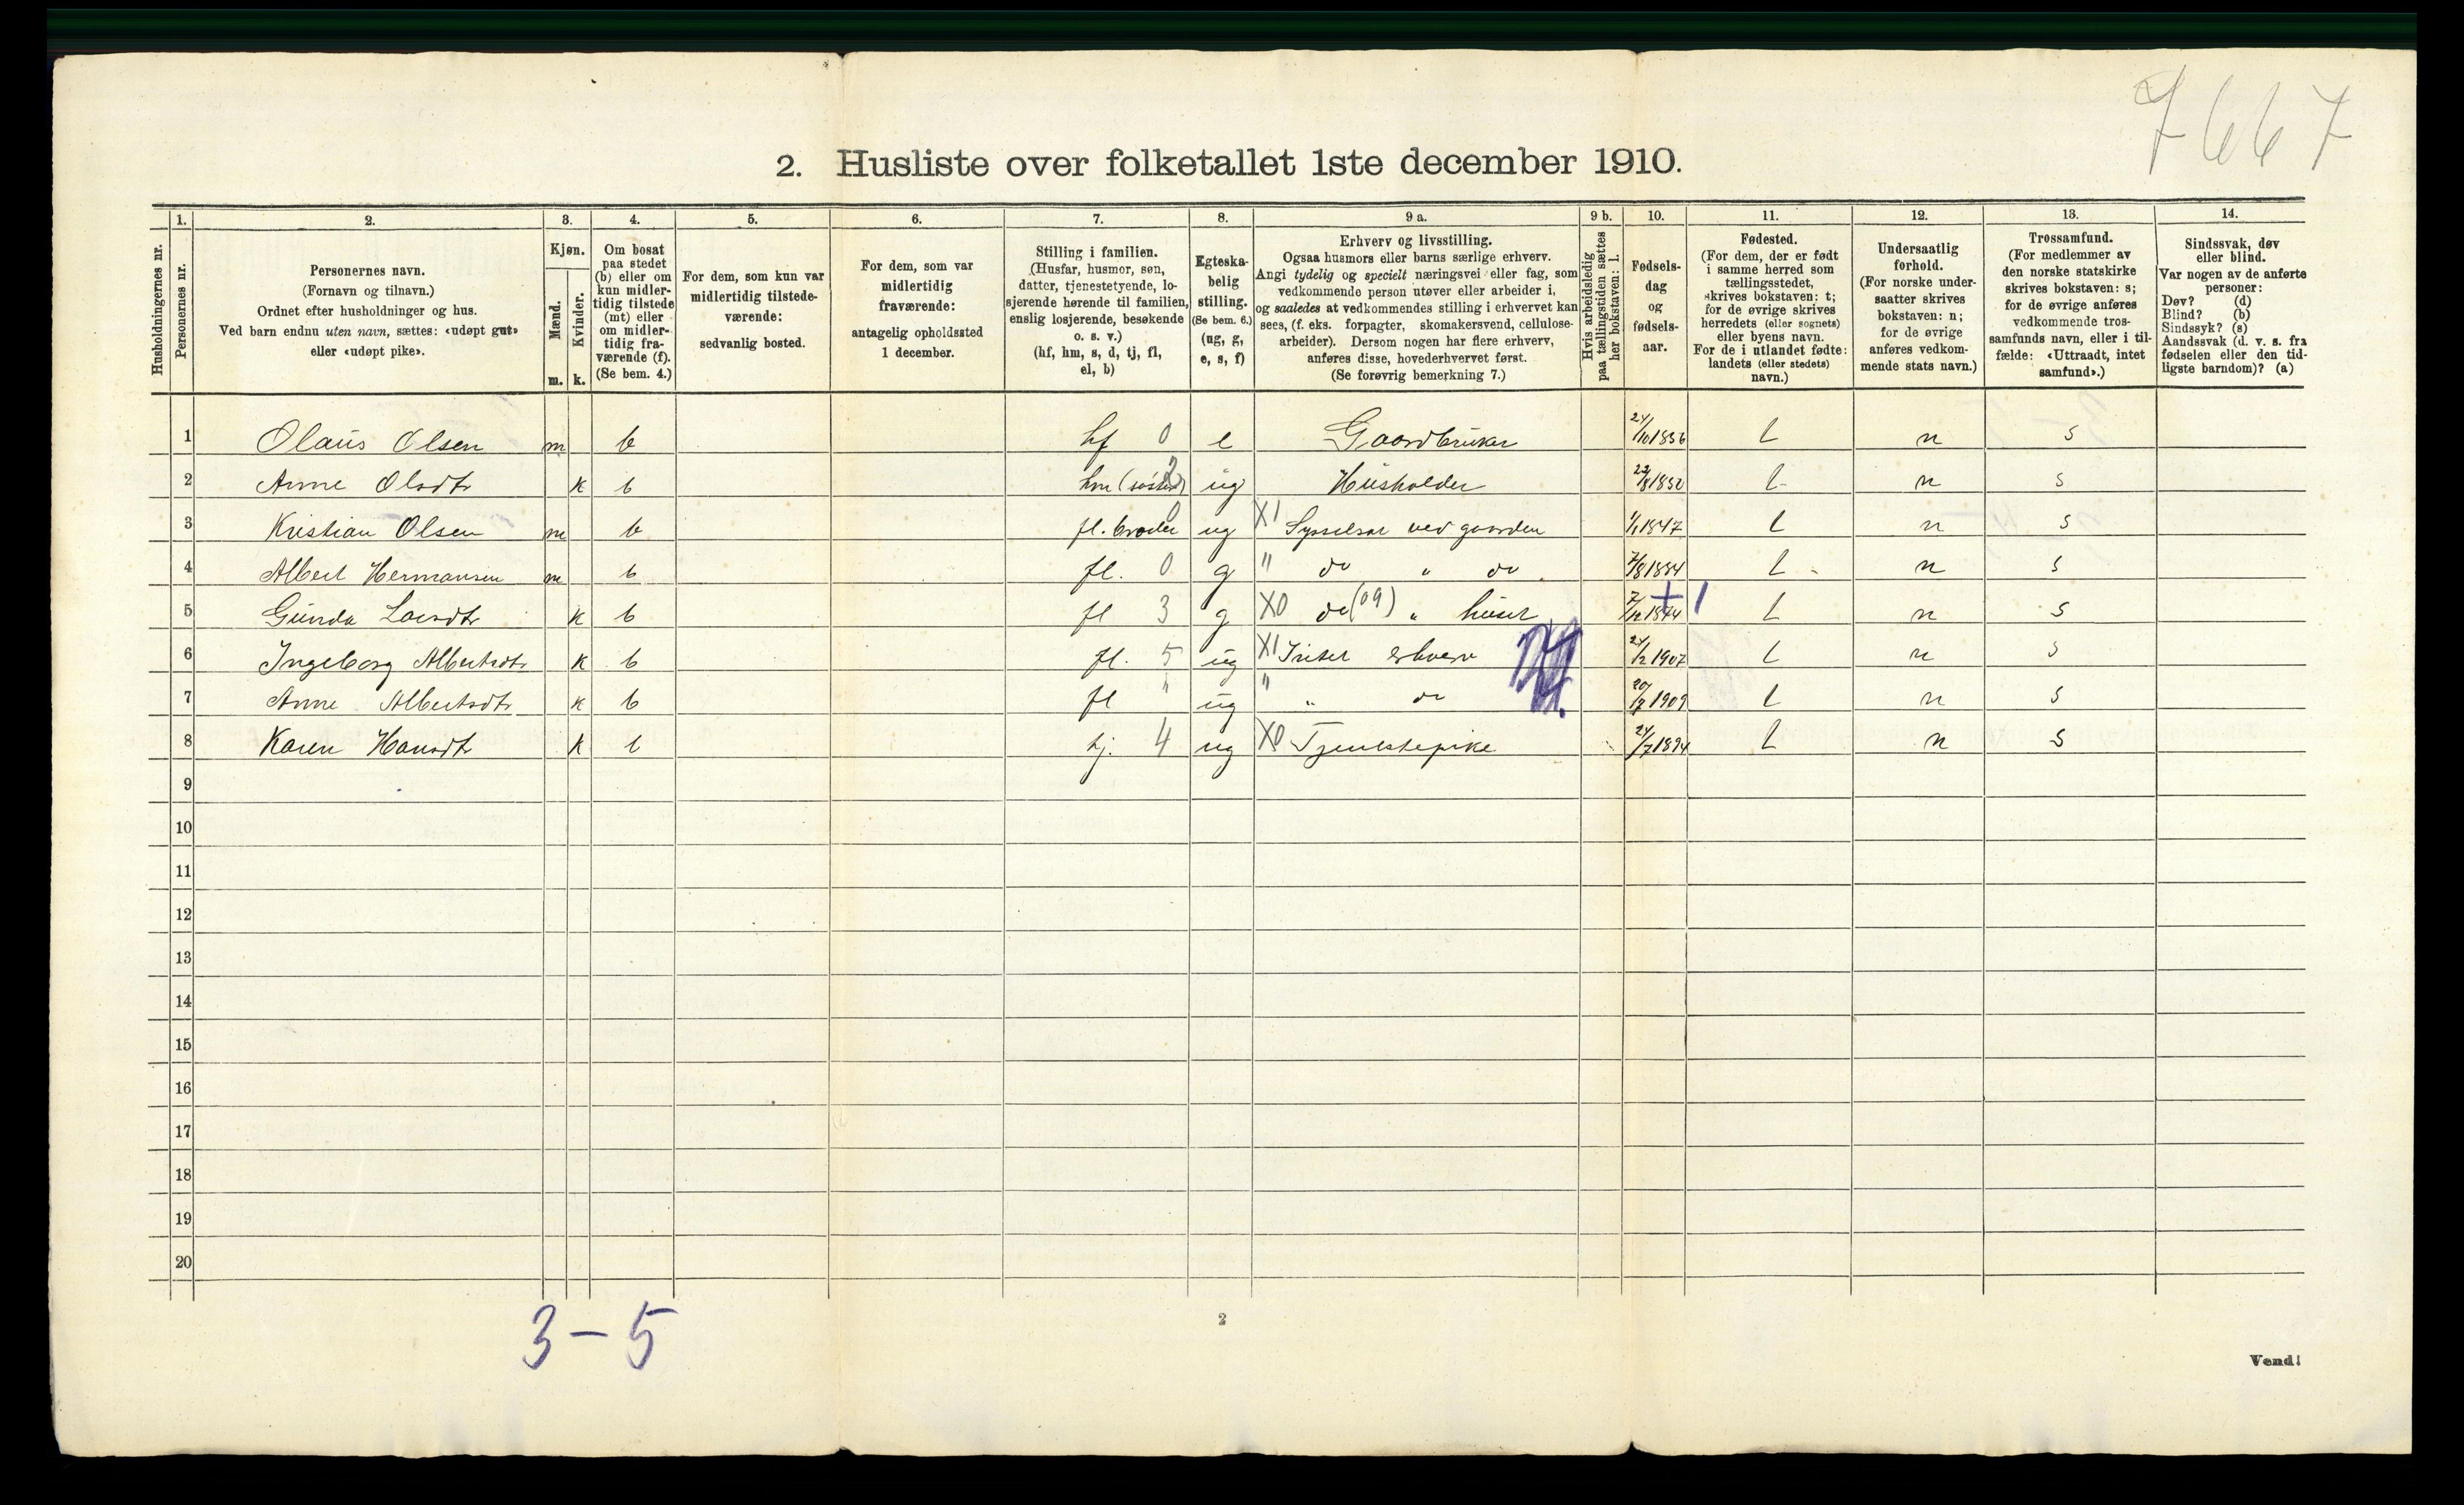 7667
2. Husliste over folketallet 1ste december 1910.
Husholdningernes nr.
1.
Personernes nr.
2.
Personernes navn.
(Fornavn og tilnavn.)
Ordnet efter husholdninger og hus.
Ved barn endnu uten navn, sættes: «udøpt gut»
eller «udøpt pike».
3.
Kjøn.
Mænd.
Kvinder.
m. k.
4.
Om bosat
paa stedet
(b) eller om
kun midler-
tidig tilstede
(mt) eller
om midler-
tidig fra-
værende (f).
(Se bem. 4.)
5.
For dem, som kun var
midlertidig tilstede-
værende:
sedvanlig bosted.
6.
For dem, som var
midlertidig
fraværende:
antagelig opholdssted
1 december.
7.
Stilling i familien.
(Husfar, husmor, søn,
datter, tjenestetyende, lo-
sjerende hørende til familien,
enslig losjerende, besøkende
o. s. v.)
(hf, hm, s, d, tj, fl,
el, b)
8.
Egteska-
belig
stilling.
(Se bem. 6.)
(ug, g,
e, s, f)
9 a.
Erhverv og livsstilling.
Ogsaa husmors eller barns særlige erhverv.
Angi tydelig og specielt næringsvei eller fag, som
vedkommende person utøver eller arbeider i,
og saaledes at vedkommendes stilling i erhvervet kan
sees, (f. eks. forpagter, skomakersvend, cellulose-
arbeider). Dersom nogen har flere erhverv,
anføres disse, hovederhvervet først.
(Se forøvrig bemerkning 7.)
9 b.
Hvis arbeidsledig
paa tællingstiden sættes
her bokstaven: l.
10.
Fødsels-
dag
og
fødsels-
aar.
11.
Fødested.
(For dem, der er født
i samme herred som
tællingsstedet,
skrives bokstaven: t;
for de øvrige skrives
herredets (eller sognets)
eller byens navn.
For de i utlandet fødte:
landets (eller stedets)
navn.)
12.
Undersaatlig
forhold.
(For norske under-
saatter skrives
bokstaven: n;
for de øvrige
anføres vedkom-
mende stats navn.)
13.
Trossamfund.
(For medlemmer av
den norske statskirke
skrives bokstaven: s;
for de øvrige anføres
vedkommende tros-
samfunds navn, eller i til-
fælde: «Uttraadt, intet
samfund».)
14.
Sindssvak, døv
eller blind.
Var nogen av de anførte
personer:
Døv? (d)
Blind? (b)
Sindssyk? (s)
Aandssvak (d. v. s. fra
fødselen eller den tid-
ligste barndom)? (a)
1 Olaus Olsen m b hf 0 e Gaardbruker 24/10 1856 t n s
2 Anne Olsdtr k b hm (søster) 2 ug Husholder 1852 t n s
3 Kristian Olsen m b fl. broder 0 ug X1 Sysselsat ved gaarden 1/1 1847 t n s
4 Albert Hermansen m b fl. 0 g " do " do 7/8 1884 t n s
5 Gunda Larsdtr k b fl 3 g X0 do (09) " huset 7/12 1874 t n s
6 Ingeborg Albertsdtr k b fl. 5 ug X1 Intet erhverv 24/2 1907 t n s
7 Anne Albertsdtr k b fl " ug " " do 1909 t n s
8 Karen Hansdtr k b tj. 4 ug X0 Tjenestepike 24/7 1894 t n s
9
10
11
12
13
14
15
16
17
18
19
20
3 - 5
2
Vend!